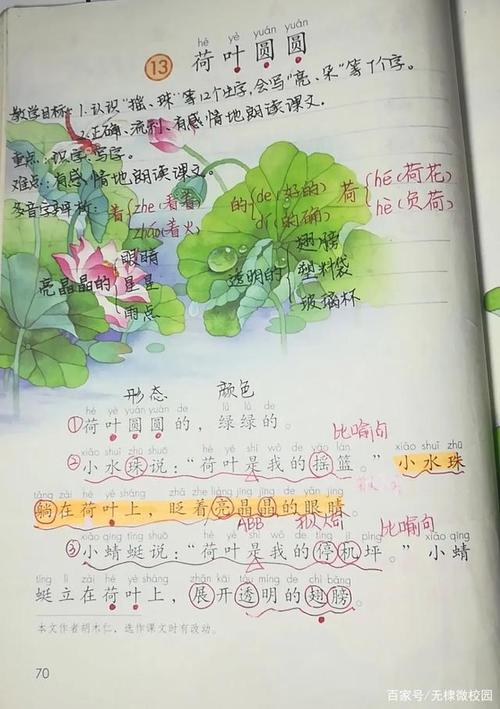 hé yè yuán yuán
13 荷叶圆圆
教学目标: 1.认识"摇、珠"等12个生字,会写"亮、朵"等7个字。
2.正确、流利、有感情地朗读课文。
重点: 识字、写字。
难点: 有感情地朗读课文。
多音字辨析: 着 zhe (看着) 的 de (好的) 荷 hé (荷花)
zháo (着火) dí (的确) hè (负荷)
眼睛 翅膀
亮晶晶的 星星 透明的 塑料袋
雨点 玻璃杯
形态 颜色
hé yè yuán yuán de lǜ lǜ de
①荷叶圆圆的,绿绿的。
比喻句
xiǎo shuǐ zhū shuō hé yè shì wǒ de yáo lán xiǎo shuǐ zhū
②小水珠说:"荷叶是我的摇篮。"小水珠
tǎng zài hé yè shàng zhǎ zhe liàng jīng jīng de yǎn jing
躺在荷叶上,眨着亮晶晶的眼睛。
ABB 拟人句 比喻句
xiǎo qīng tíng shuō hé yè shì wǒ de tíng jī píng xiǎo qīng
③小蜻蜓说:"荷叶是我的停机坪。"小蜻
tíng lì zài hé yè shàng zhǎn kāi tòu míng de chì bǎng
蜓立在荷叶上,展开透明的翅膀。
本文作者胡木仁,选作课文时有改动。
70
百家号/无棣微校园